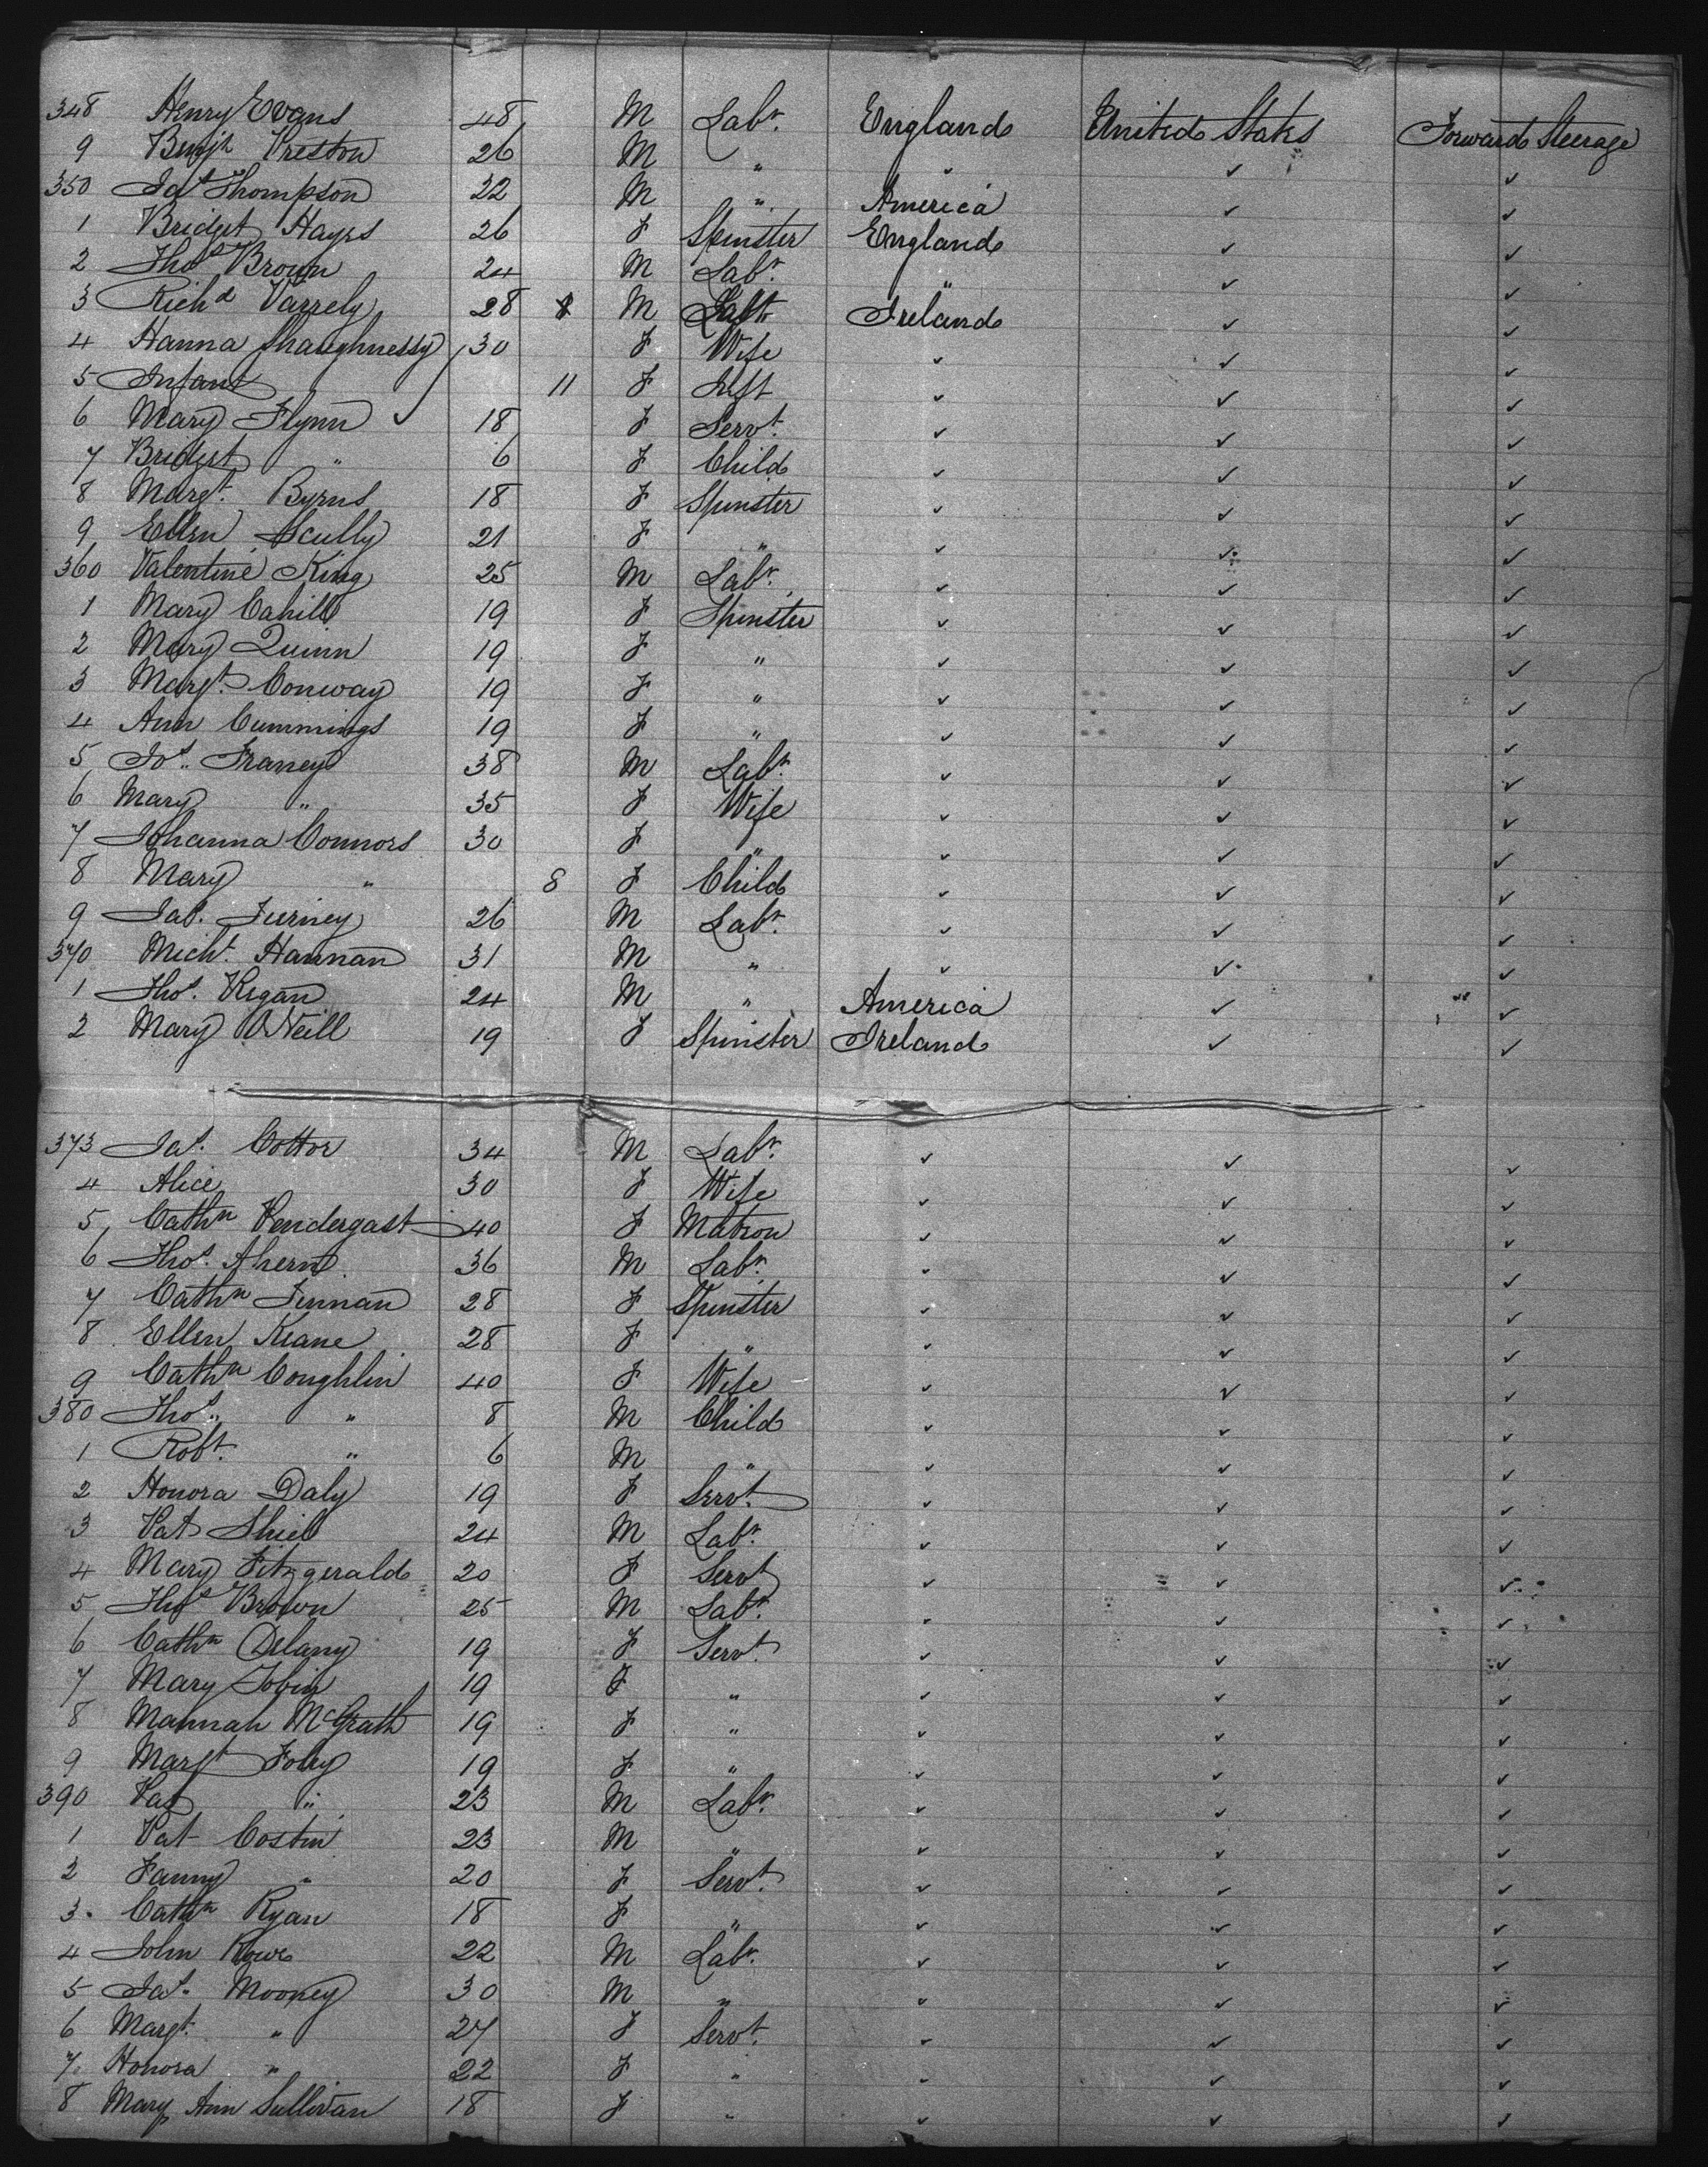 348 Henry Evans 48 M Labr. England United States Forward Steerage
9 Benjn Preston 26 M " " ✓ ✓
350 Jas Thompson 22 M " America ✓ ✓
1 Bridget Hayes 26 F Spinster England ✓ ✓
2 Thos Brown 24 M Labr. " ✓ ✓
3 Richd 28 M Ireland ✓ ✓
4 Hanna Shaughnessy 30 F Wife ✓ ✓ ✓
5 Infant 11 F Inft ✓ ✓ ✓
6 Mary Flynn 18 F Servt. ✓ ✓ ✓
7 Bridget " 6 F Child ✓ ✓ ✓
8 Margt. Byrns 18 F Spinster ✓ ✓ ✓
9 Ellen Scully 21 F " ✓ ✓ ✓
360 Valentine King 25 M Labr. ✓ ✓ ✓
1 Mary Cahill 19 F Spinster ✓ ✓ ✓
2 Mary Quinn 19 F " ✓ ✓ ✓
3 Margt. Conway 19 F " ✓ ✓ ✓
4 Ann Cummings 19 F " ✓ ✓ ✓
5 Jos. Franey 38 M Labr. ✓ ✓ ✓
6 Mary " 35 F Wife ✓ ✓ ✓
7 Johanna Connors 30 F " ✓ ✓ ✓
8 Mary " 8 F Child ✓ ✓ ✓
9 Jas. 26 M Labr. ✓ ✓ ✓
370 Michl. Hannan 31 M " ✓ ✓ ✓
1 Thos. Regan 24 M " America ✓ ✓
2 Mary O'Neill 19 F Spinster Ireland ✓ ✓
373 Jas. Cottor 34 M Labr. ✓ ✓ ✓
4 Alice 30 F Wife ✓ ✓ ✓
5 Cathn Pendergast 40 F Matron ✓ ✓ ✓
6 Thos. Ahern 36 M Labr. ✓ ✓ ✓
7 Cathn Finnan 28 F Spinster ✓ ✓ ✓
8 Ellen Keane 28 F " ✓ ✓ ✓
9 Cathn Coughlin 40 F Wife ✓ ✓ ✓
380 Thos. " 8 M Child ✓ ✓ ✓
1 Robt. " 6 M " ✓ ✓ ✓
2 Honora Daly 19 F Servt. ✓ ✓ ✓
3 Pat Shiel 24 M Labr. ✓ ✓ ✓
4 Mary Fitzgerald 20 F Servt ✓ ✓ ✓
5 Thos Brown 25 M Labr. ✓ ✓ ✓
6 Cathn Delany 19 F Servt. ✓ ✓ ✓
7 Mary Tobin 19 F " ✓ ✓ ✓
8 Mannah McGrath 19 F " ✓ ✓ ✓
9 Margt Foley 19 F " ✓ ✓ ✓
390 Pat " 23 M Labr. ✓ ✓ ✓
1 Pat Costin 23 M " ✓ ✓ ✓
2 Fanny " 20 F Servt. ✓ ✓ ✓
3. Cathn Ryan 18 F " ✓ ✓ ✓
4 John Rowe 22 M Labr. ✓ ✓ ✓
5 Jas. Mooney 30 M " ✓ ✓ ✓
6 Margt. " 27 F Servt. ✓ ✓ ✓
7. Honora " 22 F " ✓ ✓ ✓
8 Mary Ann Sullivan 18 F " ✓ ✓ ✓